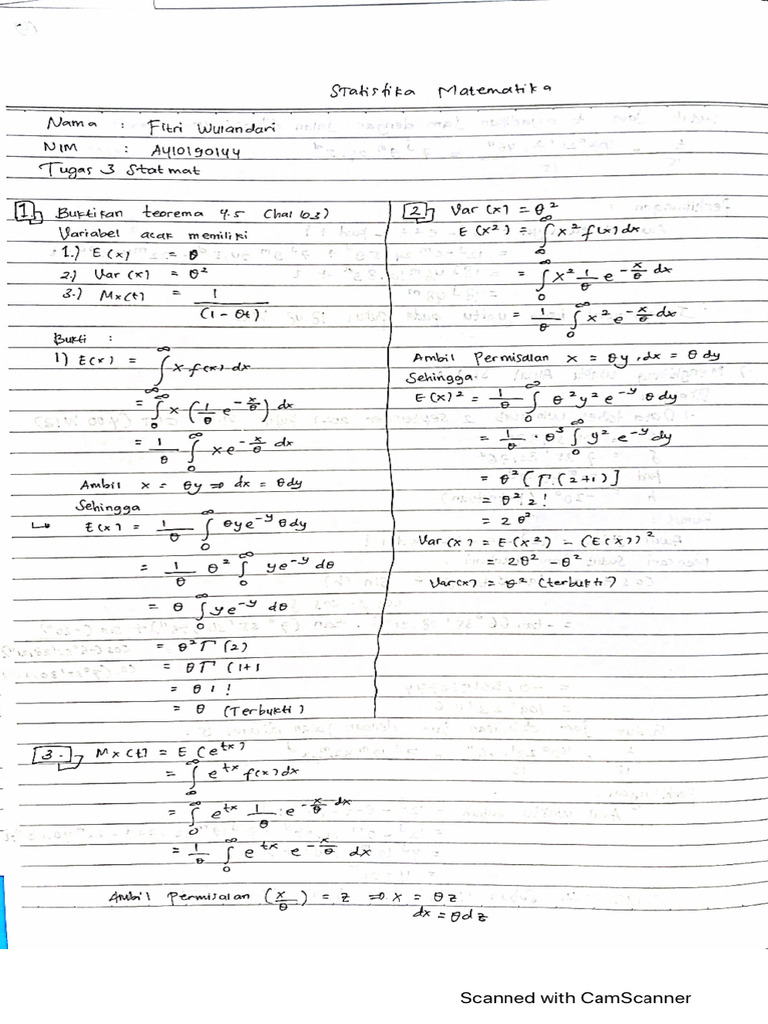 Statistika Matematika
Nama : Fitri Wulandari
NIM : A410190144
Tugas 3 Statmat
1. Buktikan teorema 4.5 (hal 103)
Variabel acak memiliki
1.) E(x) = θ
2.) Var (x) = θ²
3.) Mx(t) = 1/(1 - θt)
Bukti :
1) E(x) = ∫_∞^∞ x f(x) dx
= ∫_0^∞ x (1/θ e^{-x/θ}) dx
= 1/θ ∫_0^∞ x e^{-x/θ} dx
Ambil x = θy ⇒ dx = θdy
Sehingga
↳ E(x) = 1/θ ∫_0^∞ θy e^{-y} θdy
= 1/θ θ² ∫_0^∞ y e^{-y} dθ
= θ ∫_0^∞ y e^{-y} dθ
= θ² Γ (2)
= θ Γ (1+1
= θ 1 !
= θ (Terbukti)
2. Var (x) = θ²
E (x²) = ∫_0^∞ x² f(x) dx
= ∫_0^∞ x² 1/θ e^{-x/θ} dx
= 1/θ ∫_0^∞ x² e^{-x/θ} dx
Ambil Permisalan x = θy, dx = θ dy
Sehingga
E(x)² = 1/θ ∫_0^∞ θ² y² e^{-y} θ dy
= 1/θ · θ³ ∫_0^∞ y² e^{-y} dy
= θ² [Γ (2+1)]
= θ² 2!
= 2 θ²
Var (x) = E(x²) - (E(x))²
= 2θ² - θ²
Var(x) = θ² (terbukti)
3. Mx(t) = E (e^{tx})
= ∫_∞^∞ e^{tx} f(x) dx
= ∫_0^∞ e^{tx} 1/θ · e^{-x/θ} dx
= 1/θ ∫_0^∞ e^{tx} e^{-x/θ} dx
Ambil Permisalan (x/θ) = z ⇒ x = θz
dx = θdz
Scanned with CamScanner